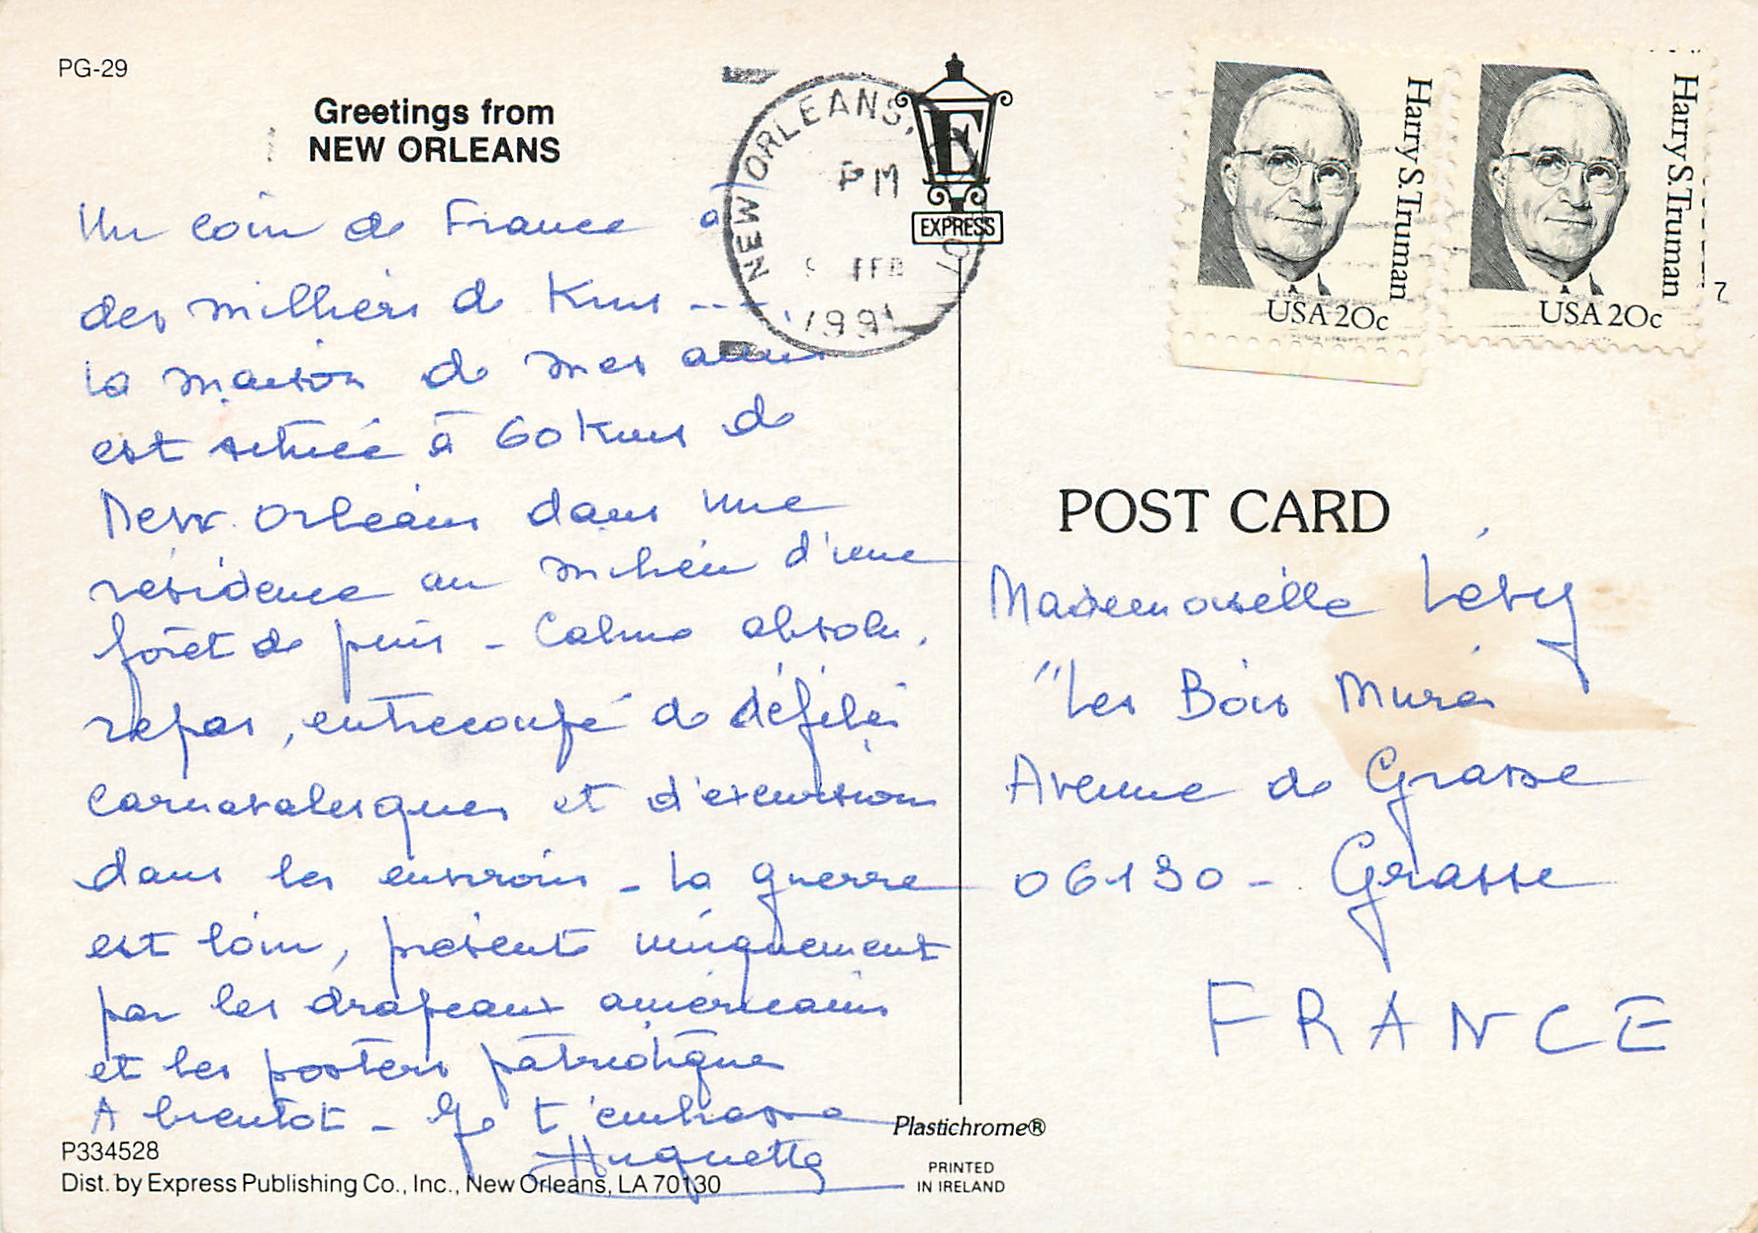 PG-29
Greetings from
NEW ORLEANS
Un coin de France à
des milliers de Kms ---
la maison de mes amis
est située à 60 Kms de
New Orléans dans une
résidence au milieu d'une
forêt de pins - Calme absolu,
repas, entrecoupé de défilés
carnavalesques et d'excursions
dans les environs - la guerre
est loin, présente uniquement
par les drapeaux américains
et les posters patriotiques
A bientôt - Je t'embrasse
Huguette
P334528
Dist. by Express Publishing Co., Inc., New Orleans, LA 70130
NEW ORLEANS,
PM
FEB
1991
E
EXPRESS
Harry S. Truman
USA 20c
Harry S. Truman
USA 20c
7
POST CARD
Mademoiselle Lévy
"Les Bois Murés
Avenue de Grasse
06130 - Grasse
FRANCE
Plastichrome®
PRINTED
IN IRELAND